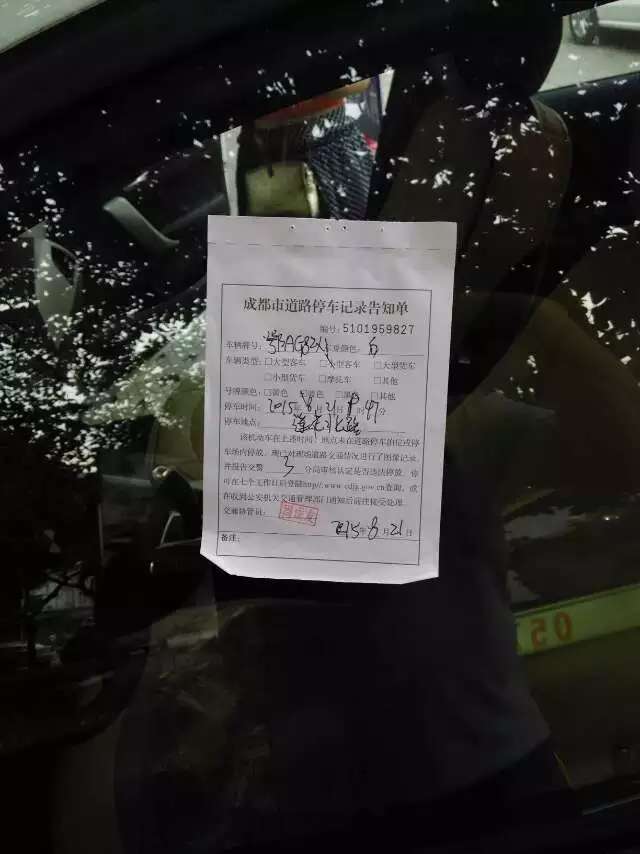 成都市道路停车记录告知单
编号:5101959827
车辆牌号: 车身颜色:
车辆类型:□大型客车 □小型客车 □大型货车
□小型货车 □摩托车 □其他
号牌颜色:□蓝色 □黄色 □黑色 □其他
停车时间:2015年8月21日 时47分
停车地点: 莲花北路
该机动车在上述时间、地点未在道路停车泊位或停
车场内停放,现已对现场道路交通情况进行了图像记录,
并报告交警 3 分局审核认定是否违法停放。你
可在七个工作日后登陆http//www.cdjg.gov.cn查询,或
在收到公安机关交通管理部门通知后前往接受处理。
交通协管员:
2015年8月21日
备注:
05